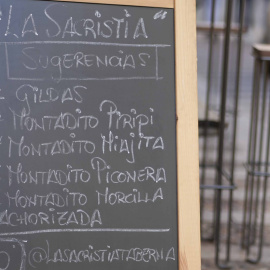 "LA SACRISTIA"
SUGERENCIAS
- GILDAS
* MONTADITO PIRIPI
* MONTADITO MIAJITA
* MONTADITO PICONERA
* MONTADITO MORCILLA
ACHORIZADA
@LASACRISTIATABERNA